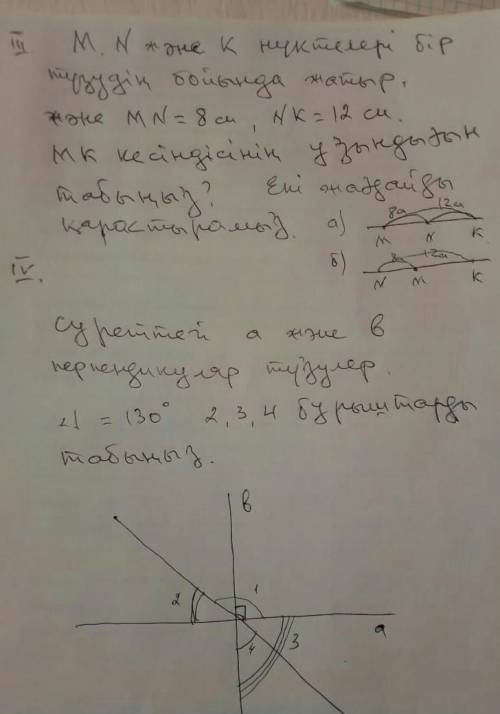 III M. N және K нүктелері бір
түзудің бойында жатыр.
және MN = 8 см, NK = 12 см.
MK кесіндісінің ұзындығын
табыңыз? Екі жағдайды
қарастырамыз. а) 8см 12см
M N K
б) 8см 12см
N M K
IV.
Суреттегі а және в
перпендикуляр түзулер.
∠1 = 130° 2, 3, 4 бұрыштарды
табыңыз.
в
2 1
4 3 а